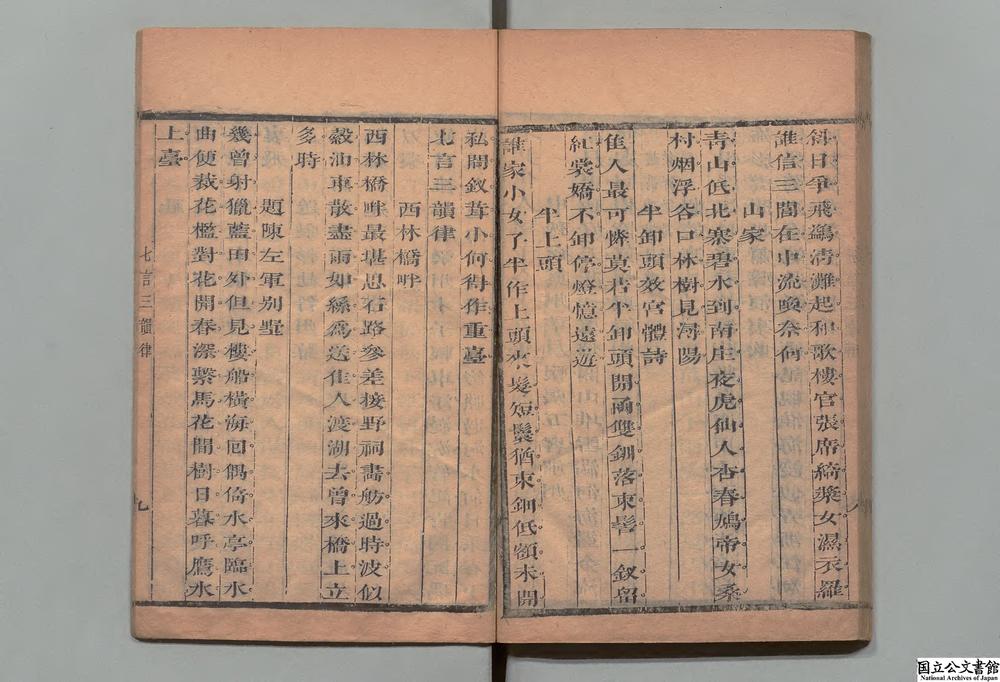 斜日爭飛鷁清灘起和歌樓官張席綺槳女濕衣羅
誰信三閭在中流喚奈何
山家
靑山低北寨碧水到南庄夜虎仙人杏春鳩帝女桑
村烟浮谷口林樹見潯陽
半卸頭效宮體詩
佳人最可憐莫若半卸頭開函雙釧落束髻一釵留
紅裳嬌不卸停燈憶遠遊
半上頭
誰家小女子半作上頭來髮短鬟猶束鈿低額未開
私開釵茸小何得作重臺
七言三韻律
西林橋畔
西林橋畔最堪思石路參差接野祠畵舫過時波似
縠油車散盡雨如絲爲送佳人渡湖去曾來橋上立
多時
題陳左軍别墅
幾曾射獵藍田外但見樓船橫海回偶倚水亭臨水
曲便裁花檻對花開春深繫馬花間樹日暮呼鷹水
上臺
七言三韻律
九
国立公文書館
National Archives of Japan